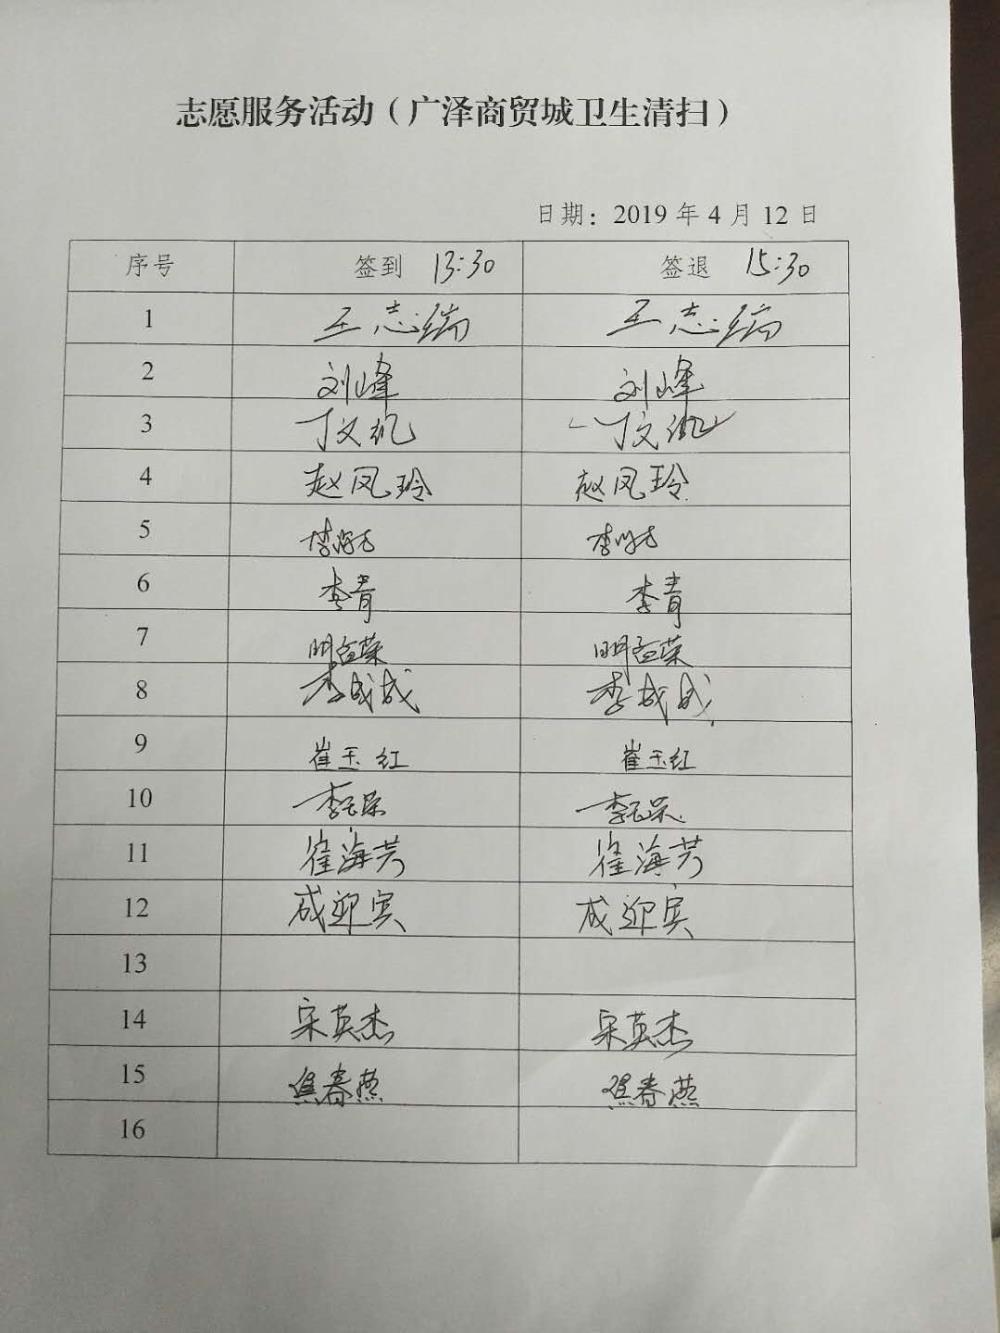 志愿服务活动（广泽商贸城卫生清扫）
日期：2019 年 4 月 12 日
序号 签到 13:30 签退 15:30
1 王志瑞 王志瑞
2 刘峰 刘峰
3 丁文 丁文
4 赵凤玲 赵凤玲
5 李 李
6 李青 李青
7 明益荣 明益荣
8 李成成 李成成
9 崔玉红 崔玉红
10 李 李
11 崔海芳 崔海芳
12 成迎宾 成迎宾
13
14 宋英杰 宋英杰
15 焦春燕 焦春燕
16